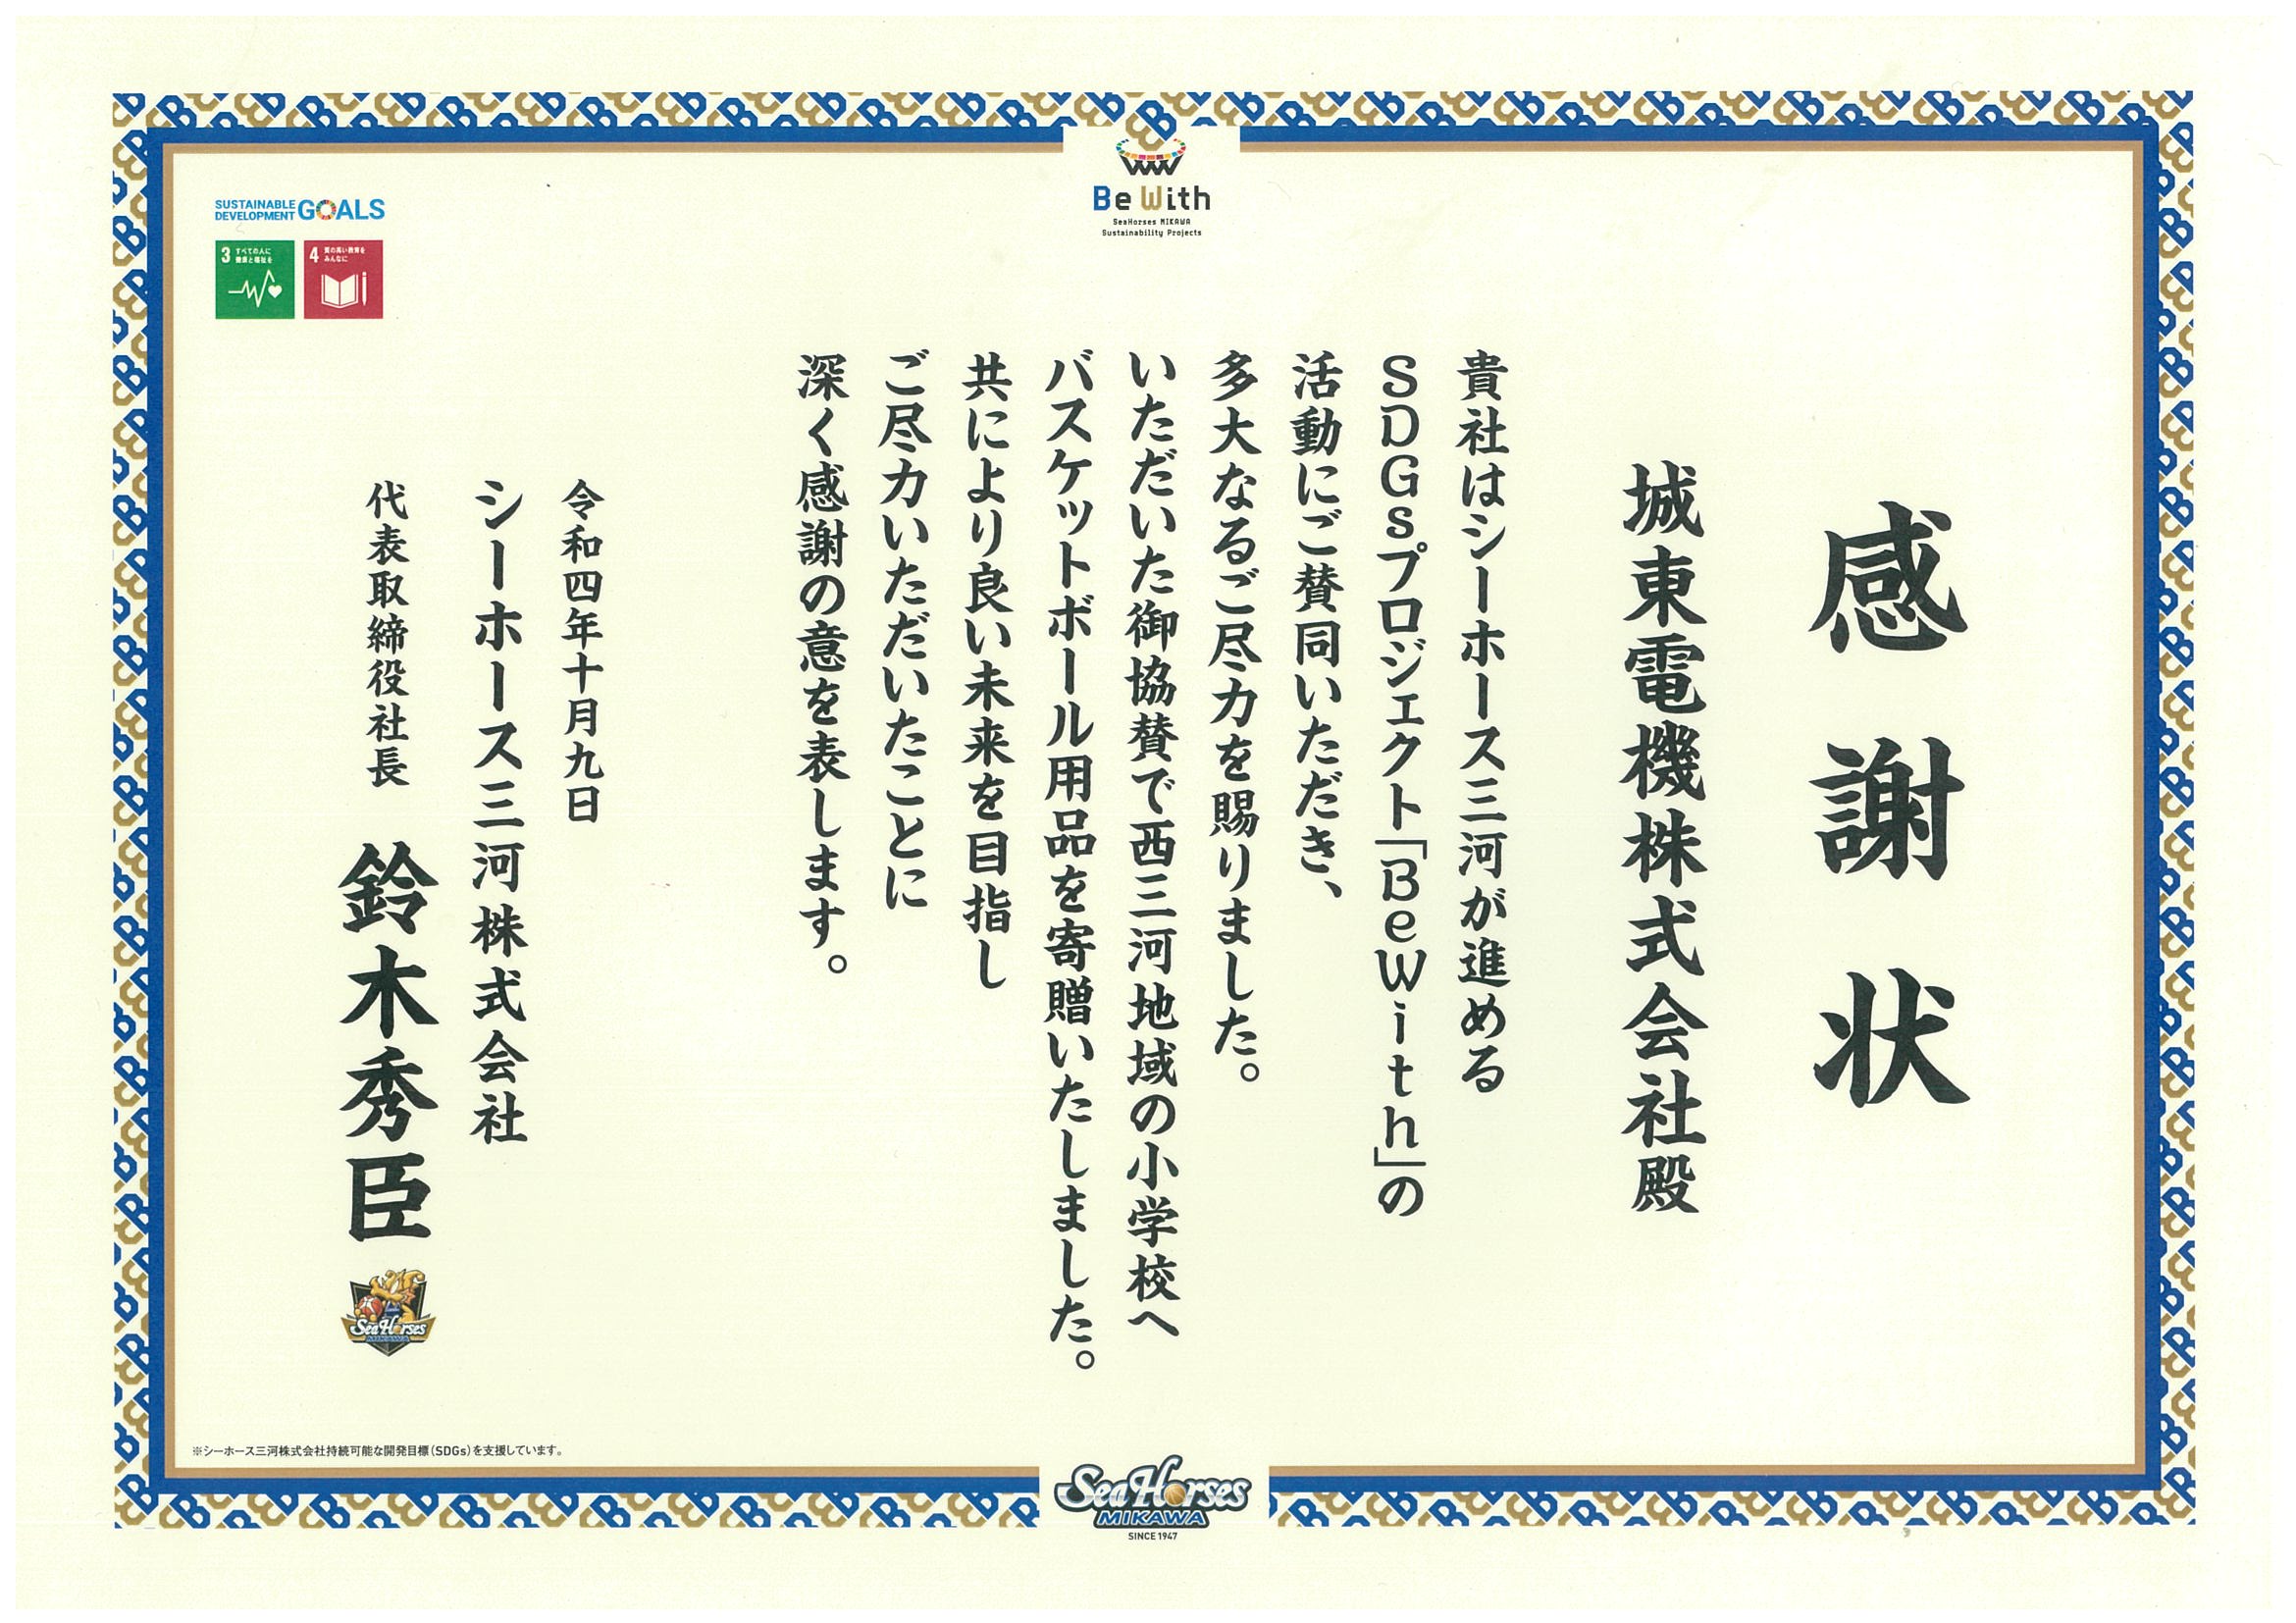 感謝状
城東電機株式会社殿
貴社はシーホース三河が進める
SDGsプロジェクト「BeWith」の
活動にご賛同いただき、
多大なるご尽力を賜りました。
いただいた御協賛で西三河地域の小学校へ
バスケットボール用品を寄贈いたしました。
共により良い未来を目指し
ご尽力いただいたことに
深く感謝の意を表します。
令和四年十月九日
シーホース三河株式会社
代表取締役社長 鈴木秀臣
SeaHorses
MIKAWA
Be With
SeaHorses MIKAWA
Sustainability Projects
SUSTAINABLE
DEVELOPMENT GOALS
3 すべての人に
健康と福祉を
4 質の高い教育を
みんなに
※シーホース三河株式会社持続可能な開発目標(SDGs)を支援しています。
SeaHorses
MIKAWA
SINCE 1947